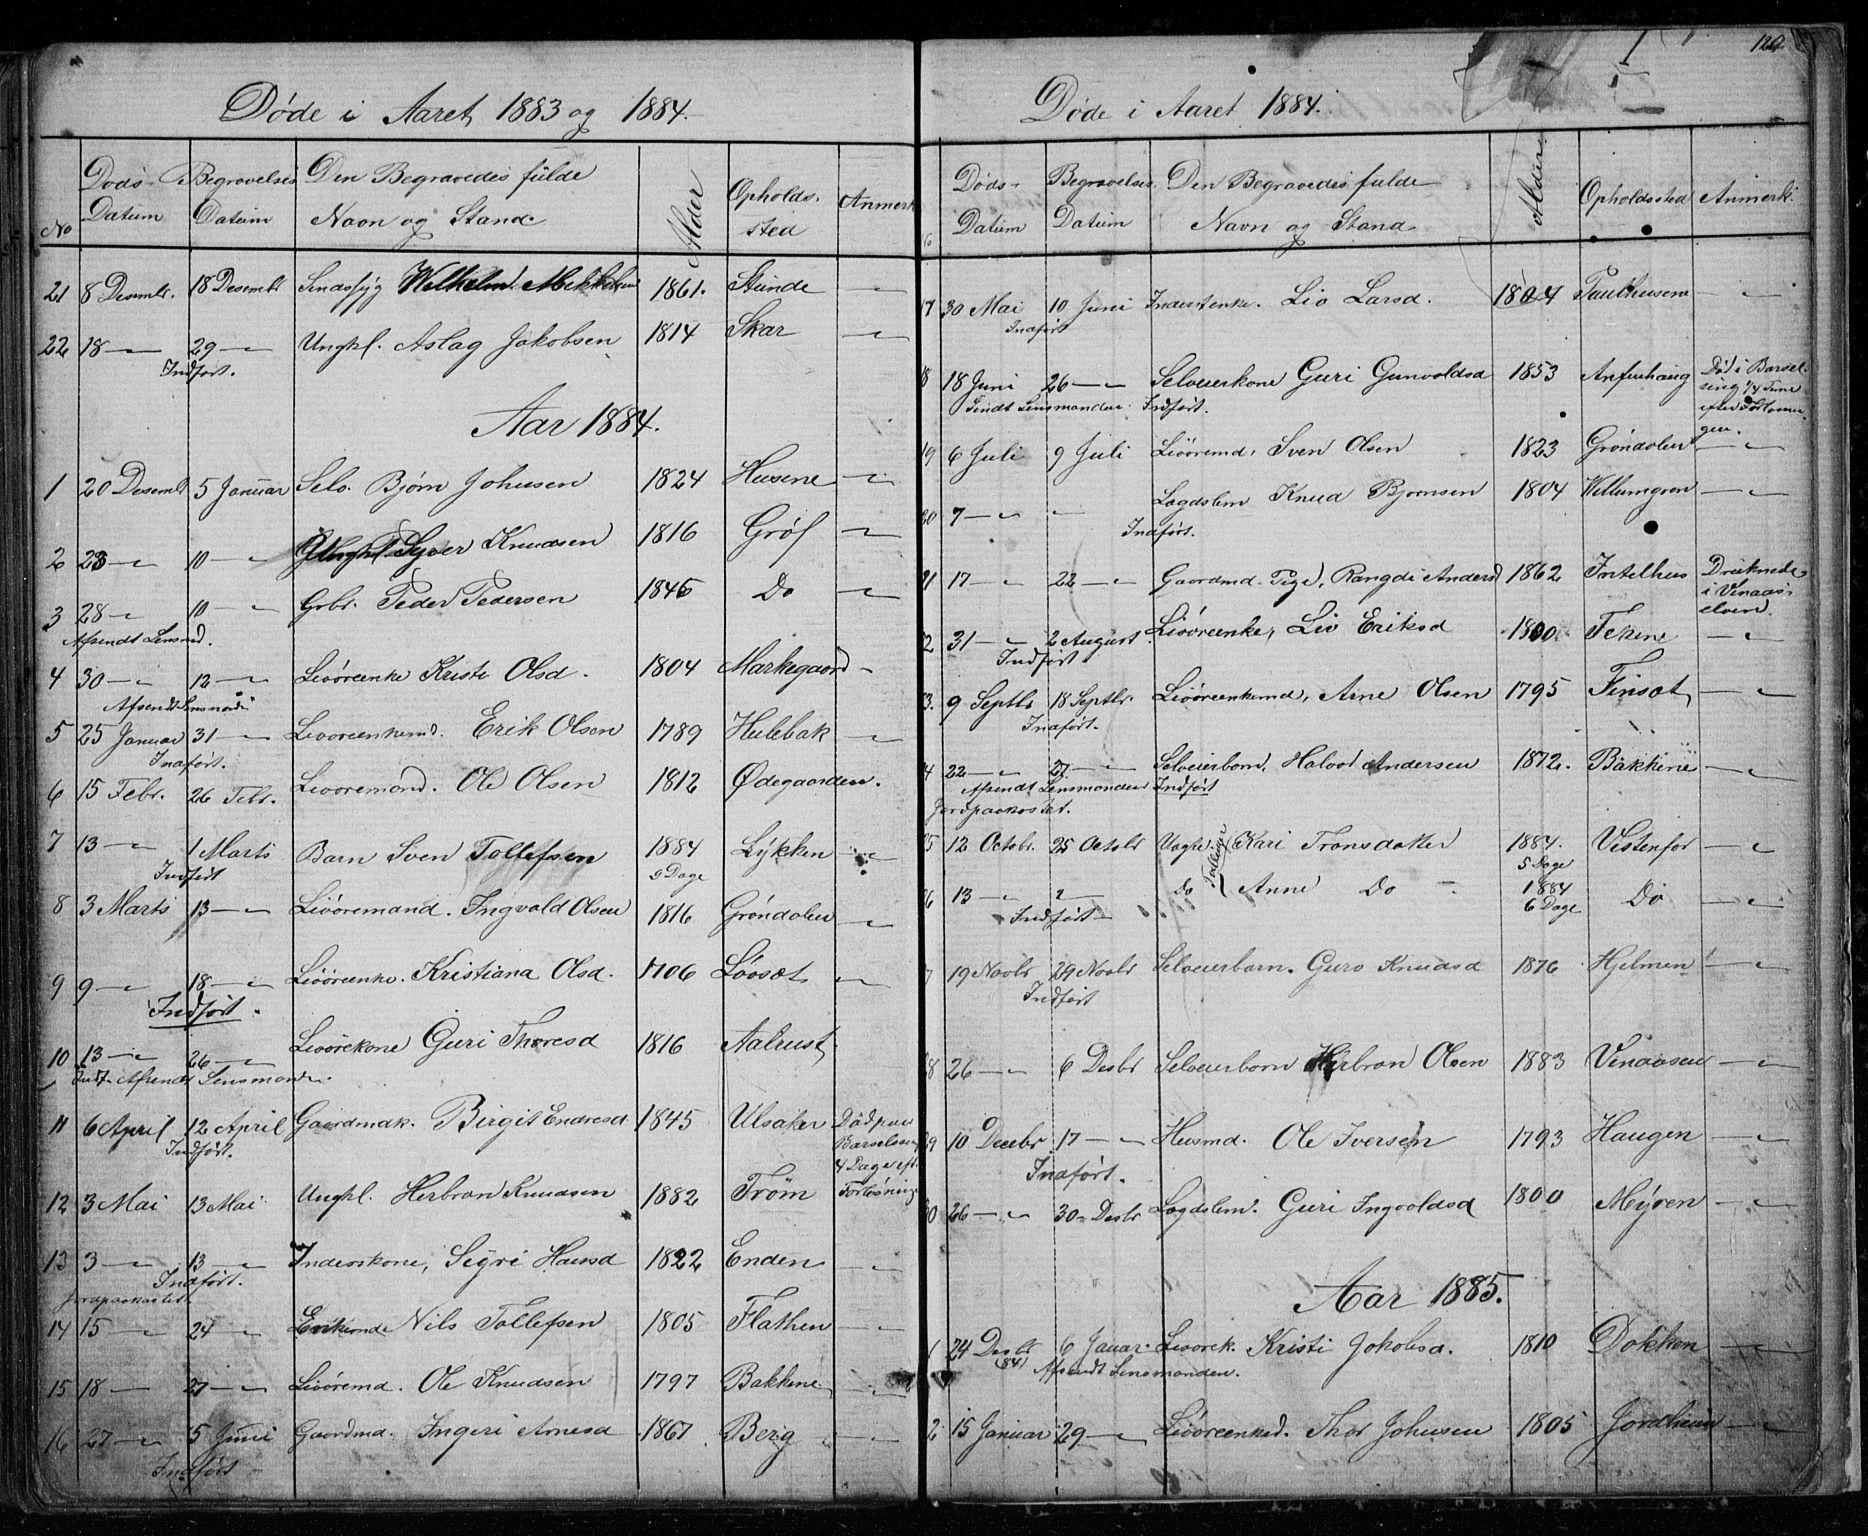 Døde i Aaret 1883 og 1884.
No
Døds Datum
Begravelses Datum
Den Begravedes fulde Navn og Stand
Alder
Opholdssted
Anmerk
21 8 Desembr. 18 Desembr Sindssyg Wilhelm Mekkelsen 1861. Stunde
22 18 — 29 — Unghl. Aslag Jakobsen 1814 Skar —
Indført.
Aar 1884.
1 20 Desembr 5 Januar Selv. Bjørn Johnsen 1824 Husene —
2 23 — 10 — Unghl. Syver Knudsen 1816 Grøf —
3 28 — 10 — Grbr. Peder Pedersen 1846 Do —
Afsendt Lensmd.
4 30 — 12 — Livørenke Kristi Olsd. 1804 Markegaard —
Afsendt Lensmand
5 25 Januar 31 — Livørenkemd. Erik Olsen 1789 Hulebak —
Indført.
6 15 Febr. 26 Febr. Livøremand. Ole Olsen 1812 Ødegaarden.
7 13 — 1 Marts Barn Sven Tollefsen 1884 Lykken —
Indført 9 Dage
8 3 Marts 13 — Livøremand. Ingvald Olsen 1816 Grøndalen —
9 9 — 18 — Livørenke. Kristiana Olsd. 1706 Løvsæt —
Indført.
10 13 — 26 — Livørekone Guri Thoresd 1816 Aalrust.
Indf. Afsendt Lensmanden.
11 6 April 12 April Gaardmak. Birgit Endresd 1845 Ulsaker Død paa
Indført. Barselseng
4 Dage eft.
12 3 Mai 13 Mai Unghl. Herbran Knudsen 1882 Trøm Forløsning
13 3 — 13 — Inderskone, Sigri Hansd 1822 Enden —
Indført.
Jordpaakastet.
14 15 — 24 — Enkemd Nils Tollefsen 1805 Flathen —
15 18 — 27 — Livøremd. Ole Knudsen 1797 Bakkene —
16 27 — 5 Juni Gaardmd. Ingeri Arnesd 1867 Berg —
Indført
Døde i Aaret 1884.
129
Døds-Datum
Begravelses Datum
Den Begravedes fulde Navn og Stand
Alder
Opholdssted
Anmerk.
17 30 Mai 10 Juni Inderstenke. Liv Larsd. 1804 Paulhusene —
Indført
18 18 Juni 26 — Selveierkone Guri Gunvoldsd 1853 Død i Barsel-
Sendt Lensmanden. Indført. seng 1/4 Time
efter Forløsnin-
gen.
19 6 Juli 9 Juli Livøremd. Sven Olsen 1823 Grøndalen —
20 7 — — Lægdslem Knud Bjørnsen 1804 Villumgren —
Indført.
21 17 — 22 — Gaardmd. Pige, Rangdi Andersd 1862 Intelhus Druknede
i Venaas-
elven.
22 31 — 2 August. Livørenke, Liv Eriksd 1800 Tekene —
Indført.
23. 9 Septbr 18 Septbr. Livørenkemd, Arne Olsen 1795 Finsæt —
Indført.
24 22 — 27 — Selveierbarn. Halvor Andersen 1872. Bakkene —
Afsendt Lensmanden Indført
Jordpaakastet.
25 12 Octobr. 25 Octobr Kari Tronsdatter 1884. Vestenfor —
5 Dage
Tvillinger
26 13 — " Do Anne Do 1884 Do —
Indført 6 Dage
27 19 Novbr 29 Novbr Selveierbarn. Guro Knudsd 1876 Hjelmen —
Indført
28 26 — 6 Desbr Selveierbarn Herbran Olsen 1883 Venaasen —
29 10 Decbr 17 — Husmd. Ole Iversen 1793 Haugen —
Indført.
30 26 — 30 Desbr Lægdslem. Guri Ingvoldsd 1800 Myren —
Aar 1885.
1 24 Desbr (84) 6 Januar. Livørek. Kristi Jakobsd. 1810 Dokken —
Afsendt Lensmanden.
2 15 Januar 29 — Livørenked. Thor Johnsen 1805 Jordheim —